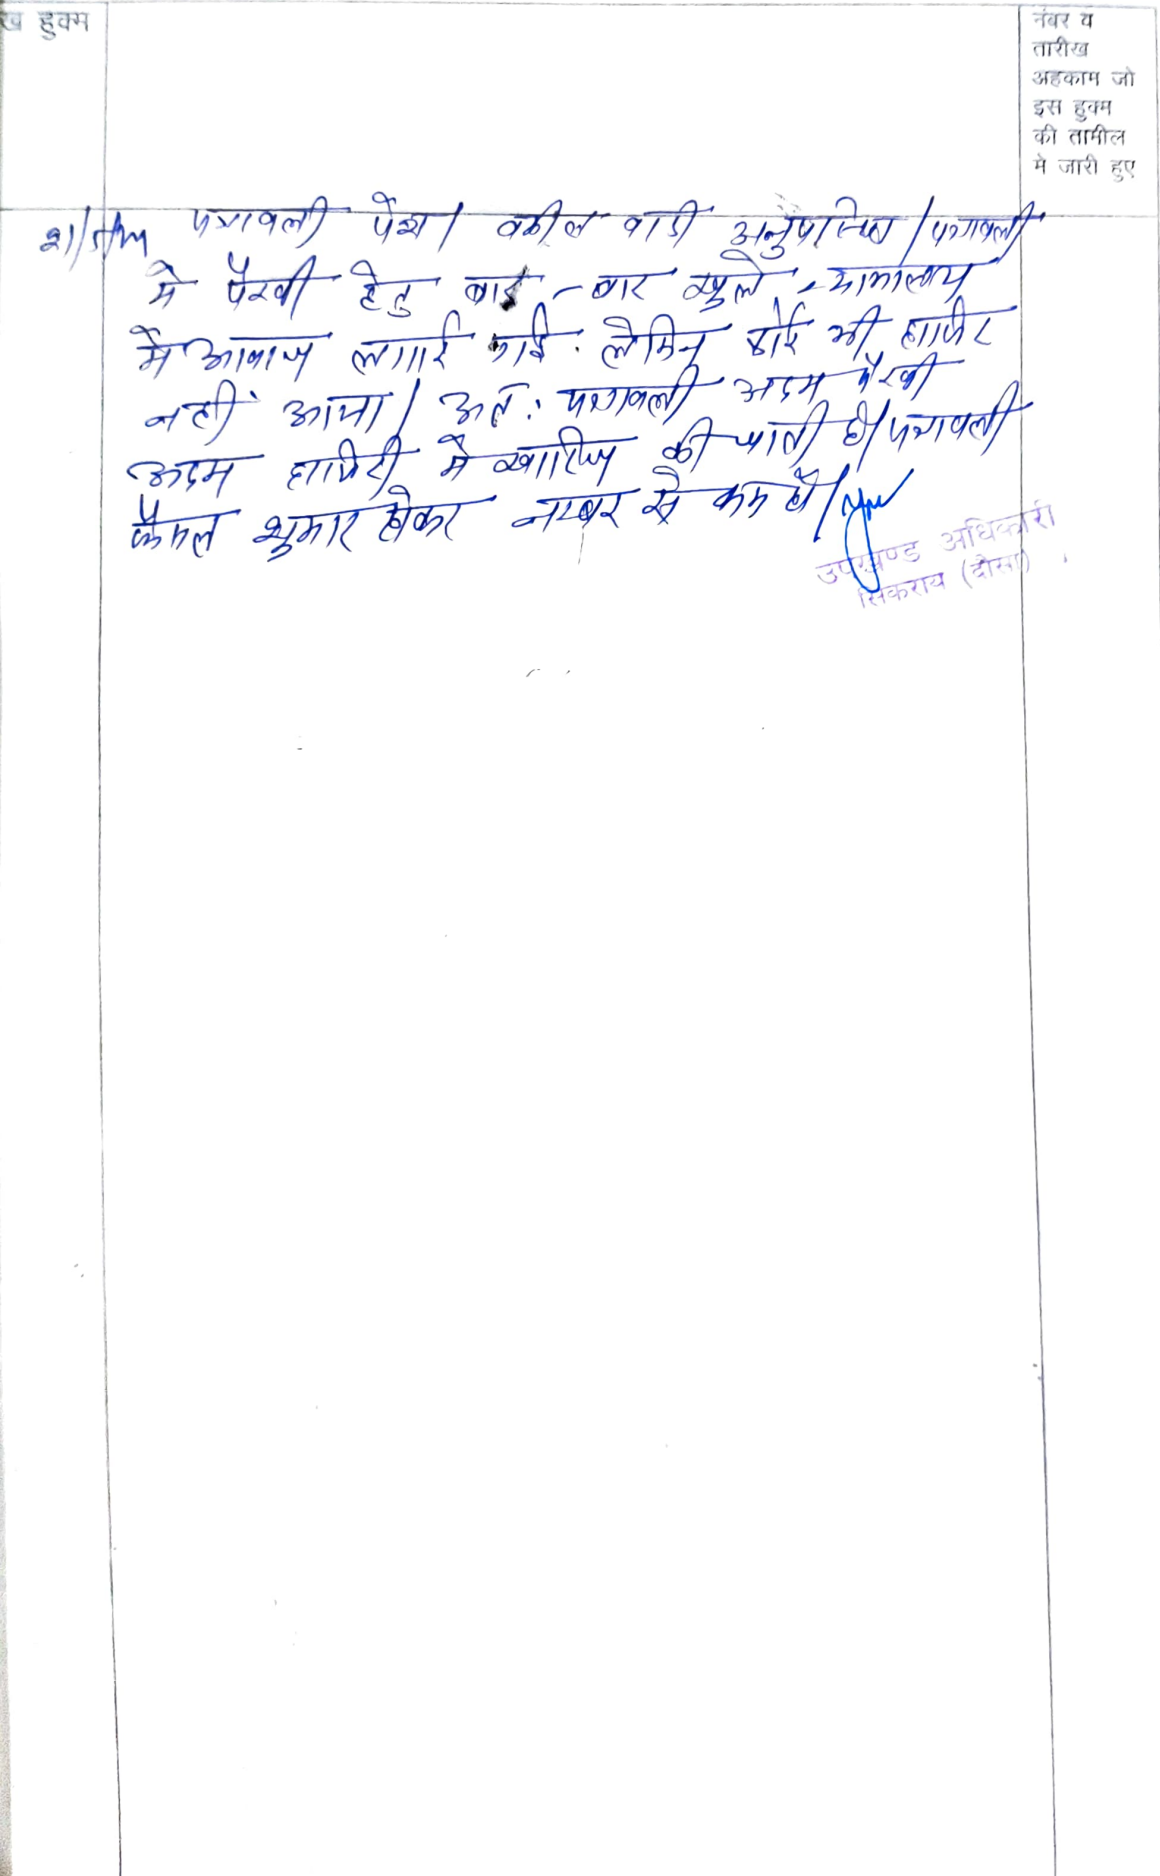 ख हुक्म
नंबर व
तारीख
अहकाम जो
इस हुक्म
की तामील
मे जारी हुए
पत्रावली पेश। वकील वादी अनुपस्थित। पत्रावली
मे पैरवी हेतु बार-बार खुले न्यायालय
में आवाज लगाई गई. लेकिन कोई भी हाजिर
नहीं आया। अतः पत्रावली अदम पैरवी
अदम हाजिरी मे खारिज की जाती है। पत्रावली
फैसल शुमार होकर नम्बर से कम हो।
उपखण्ड अधिकारी
सिकराय (दौसा)